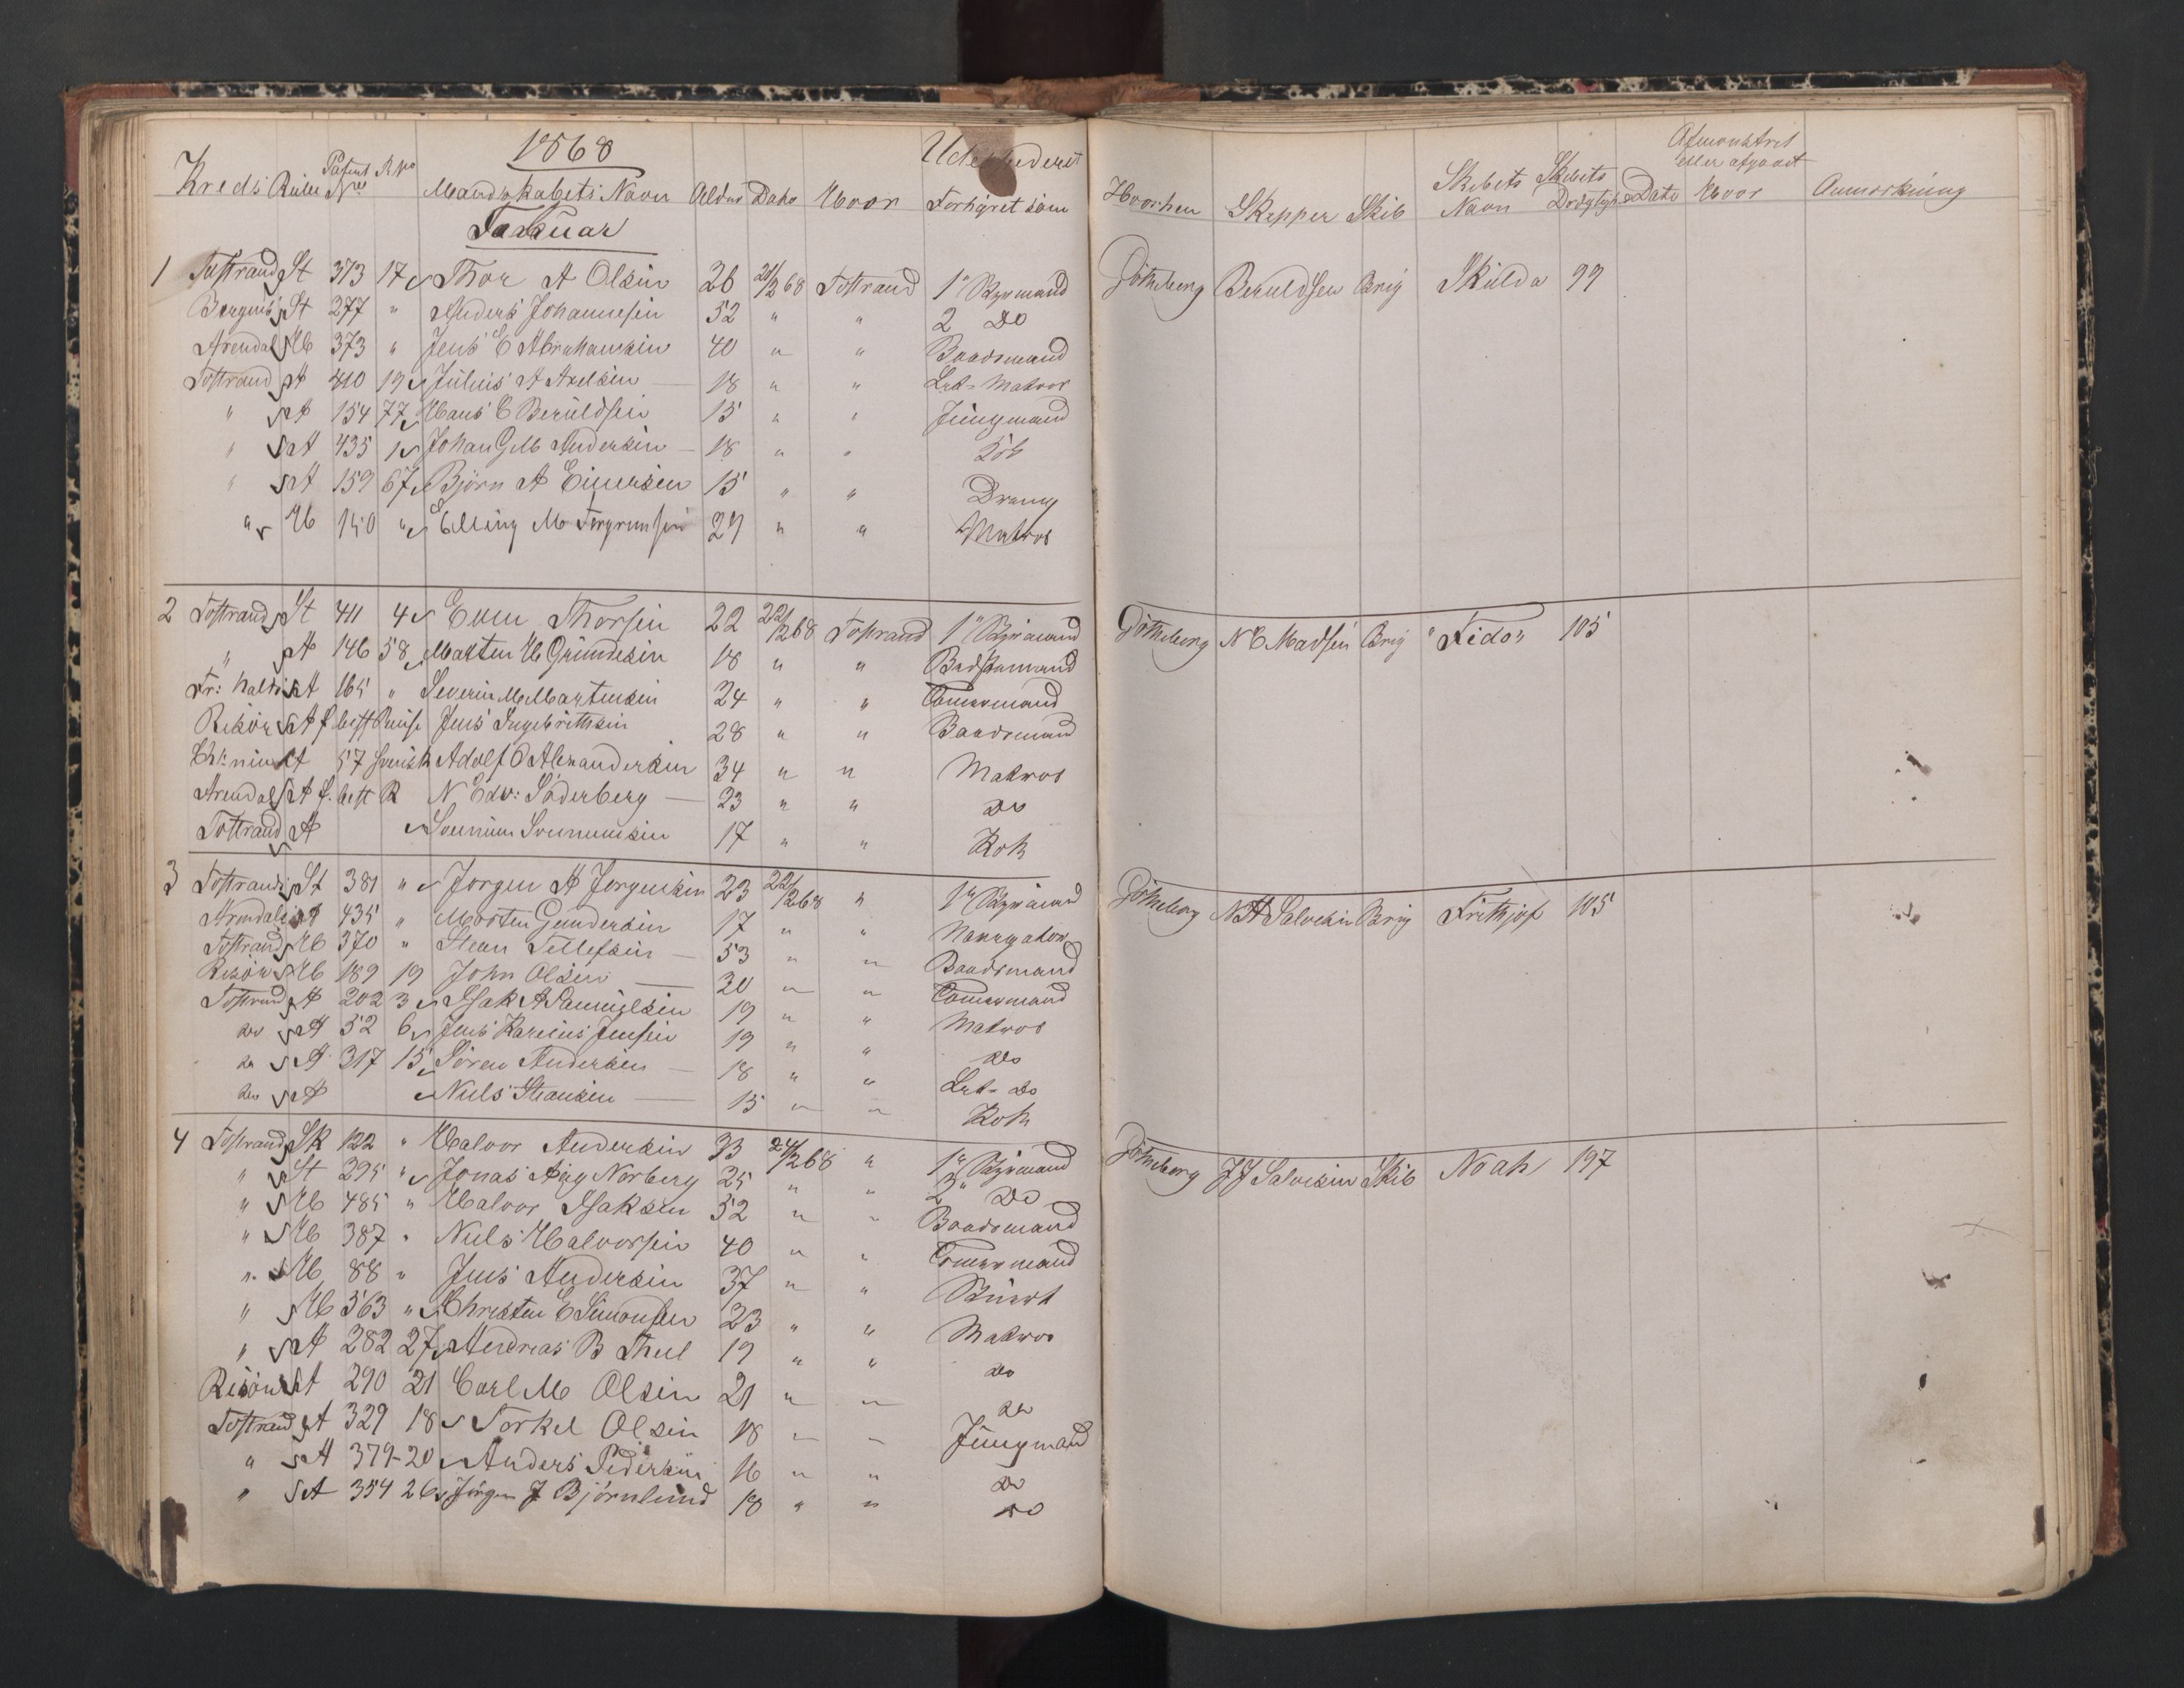 1868
Kreds Rulle Patent Nr R No Mandskabets Navn Alder Dato Hvor Forhyret som Hvorhen Skipper Skib Skibets Navn Skibets Drægtigh. Dato Hvor Anmærkning
Afmønstret eller afgaaet
Januar
1 Tvestrand St 373 17 Thor A Olsen 26 21/2 68 Tvestrand 1" Styrmand Götheborg Beruldsen Brig Skulda 99
St 277 " Anders Johannesen 52 " " 2 Do
Arendal H 373 " Jens E Abrahamsen 40 " " Baadsmand
Tvestrand A 410 19 Julius A Axelsen 18 " " Let- Matros
" A 154 77 Hans E Beruldsen 15 " " Jungmand
" A 435 1 Johan G M Andersen 18 " " Kok
" A 159 67 Björn A Einersen 15 " " Dreng
" H 150 " Elling M Torgrimsen 29 " " Matros
2 Tvestrand St 411 4 Even Thorsen 22 22/2 68 Tvestrand 1" Styrmand Götheborg N C Madsen Brig "Fido" 105
" A 146 58 Morten H Gundersen 18 " " Bedstemand
Fr: hald A 165 " Severin M Martensen 24 " " Tömermand
Risör A f. best Reise Jens Ingebrethsen 28 " " Baadsmand
A 57 svensk Adolf O Alexandersen 34 " " Matros
Arendal A f. best R N Edv: Söderberg 23 " " do
Tvestrand A Svenum Svenumsen 17 " " Kok
3 Tvestrand St 381 " Jorgen A Jorgensen 23 22/2 68 " 1" Styrmand Götheborg N A Salvesen Brig Frithjof 105
Arendal A 435 " Morten Gundersen 17 " " Navigatør
Tvestrand H 370 " Stean Tellefsen 53 " " Baadsmand
Risör H 189 19 John Olsen 20 " " Tömermand
Tvestrand A 202 3 Isak A Samuelsen 19 " " Matros
do A 52 6 Jens Karenus Jensen 19 " " do
do A 317 15 Sören Andersen 18 " " Let- do
do A Niels Hansen 15 " " Kok
4 Tvestrand Sk 122 " Halvor Andersen 33 24/2 68 " 1" Styrmand Götheborg J J Salvesen Skib Noah 197
" St 295 " Jonas Aug Norberg 25 " " 2" Do
" H 485 " Halvor Isaksen 52 " " Baadsmand
" H 387 " Niels Halvorsen 40 " " Tömermand
" H 88 " Jens Andersen 37 " " Stuert
" H 563 " Christen E Simonsen 23 " " Matros
" A 282 27 Andreas B Theel 19 " " do
Risör A 290 21 Carl M Olsen 21 " " do
Tvestrand A 329 18 Torkel Olsen 18 " " Jungmand
" A 379-20 Anders Pedersen 16 " " do
" A 354 26 Jörgen J Björnlund 18 " " do